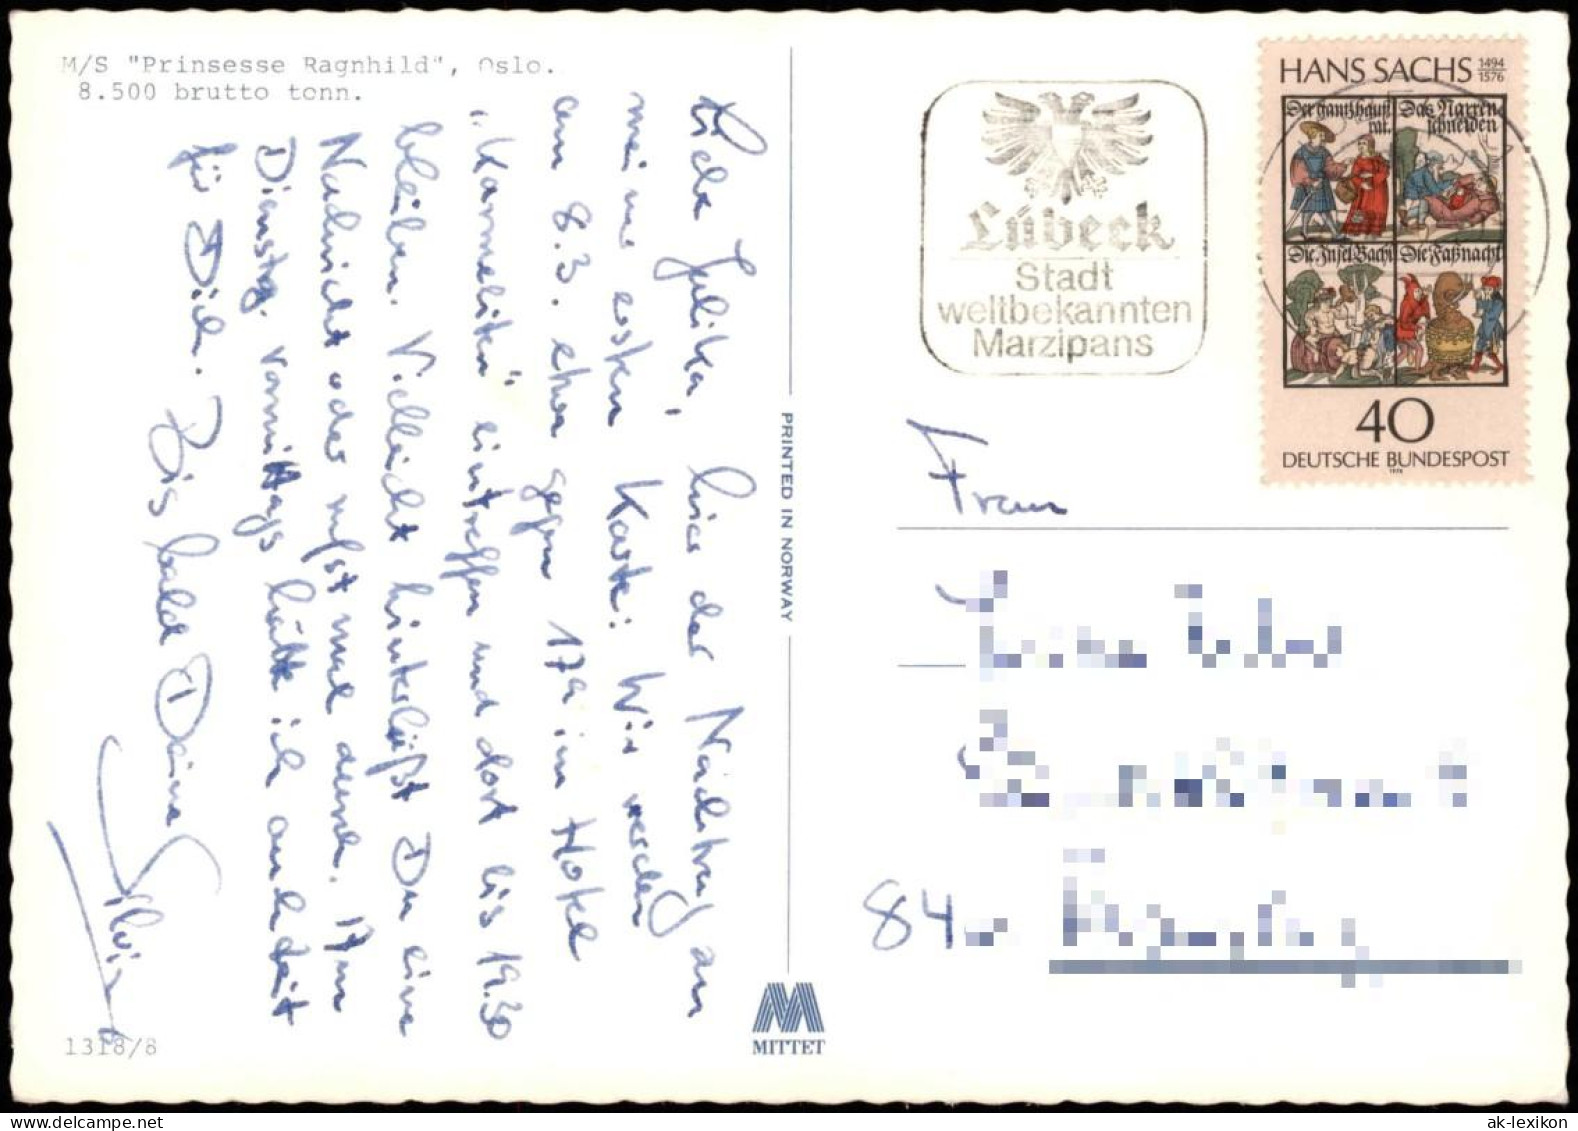 M/S "Prinsesse Ragnhild", Oslo.
8.500 brutto tonn.
Liebe Julika, hier der Nachtrag an
meine ersten Karte: Wir werden
am 8.3. etwa gegen 17h im Hotel
„Karmeliten" eintreffen und dort bis 19.30
bleiben. Vielleicht hinterläßt Du eine
Nachricht oder rufst mal durch. Am
Dienstag vormittags hätte ich auch Zeit
für Dich. Bis bald Deine
Silvia
1318/8
PRINTED IN NORWAY
MITTET
Lübeck
Stadt
weltbekannten
Marzipans
HANS SACHS 1494 1576
Der gantz haußrat. Das Narrenschneiden
Die Insel Bachi Die Faßnacht
40
DEUTSCHE BUNDESPOST
1976
Frau
84
ak-lexikon